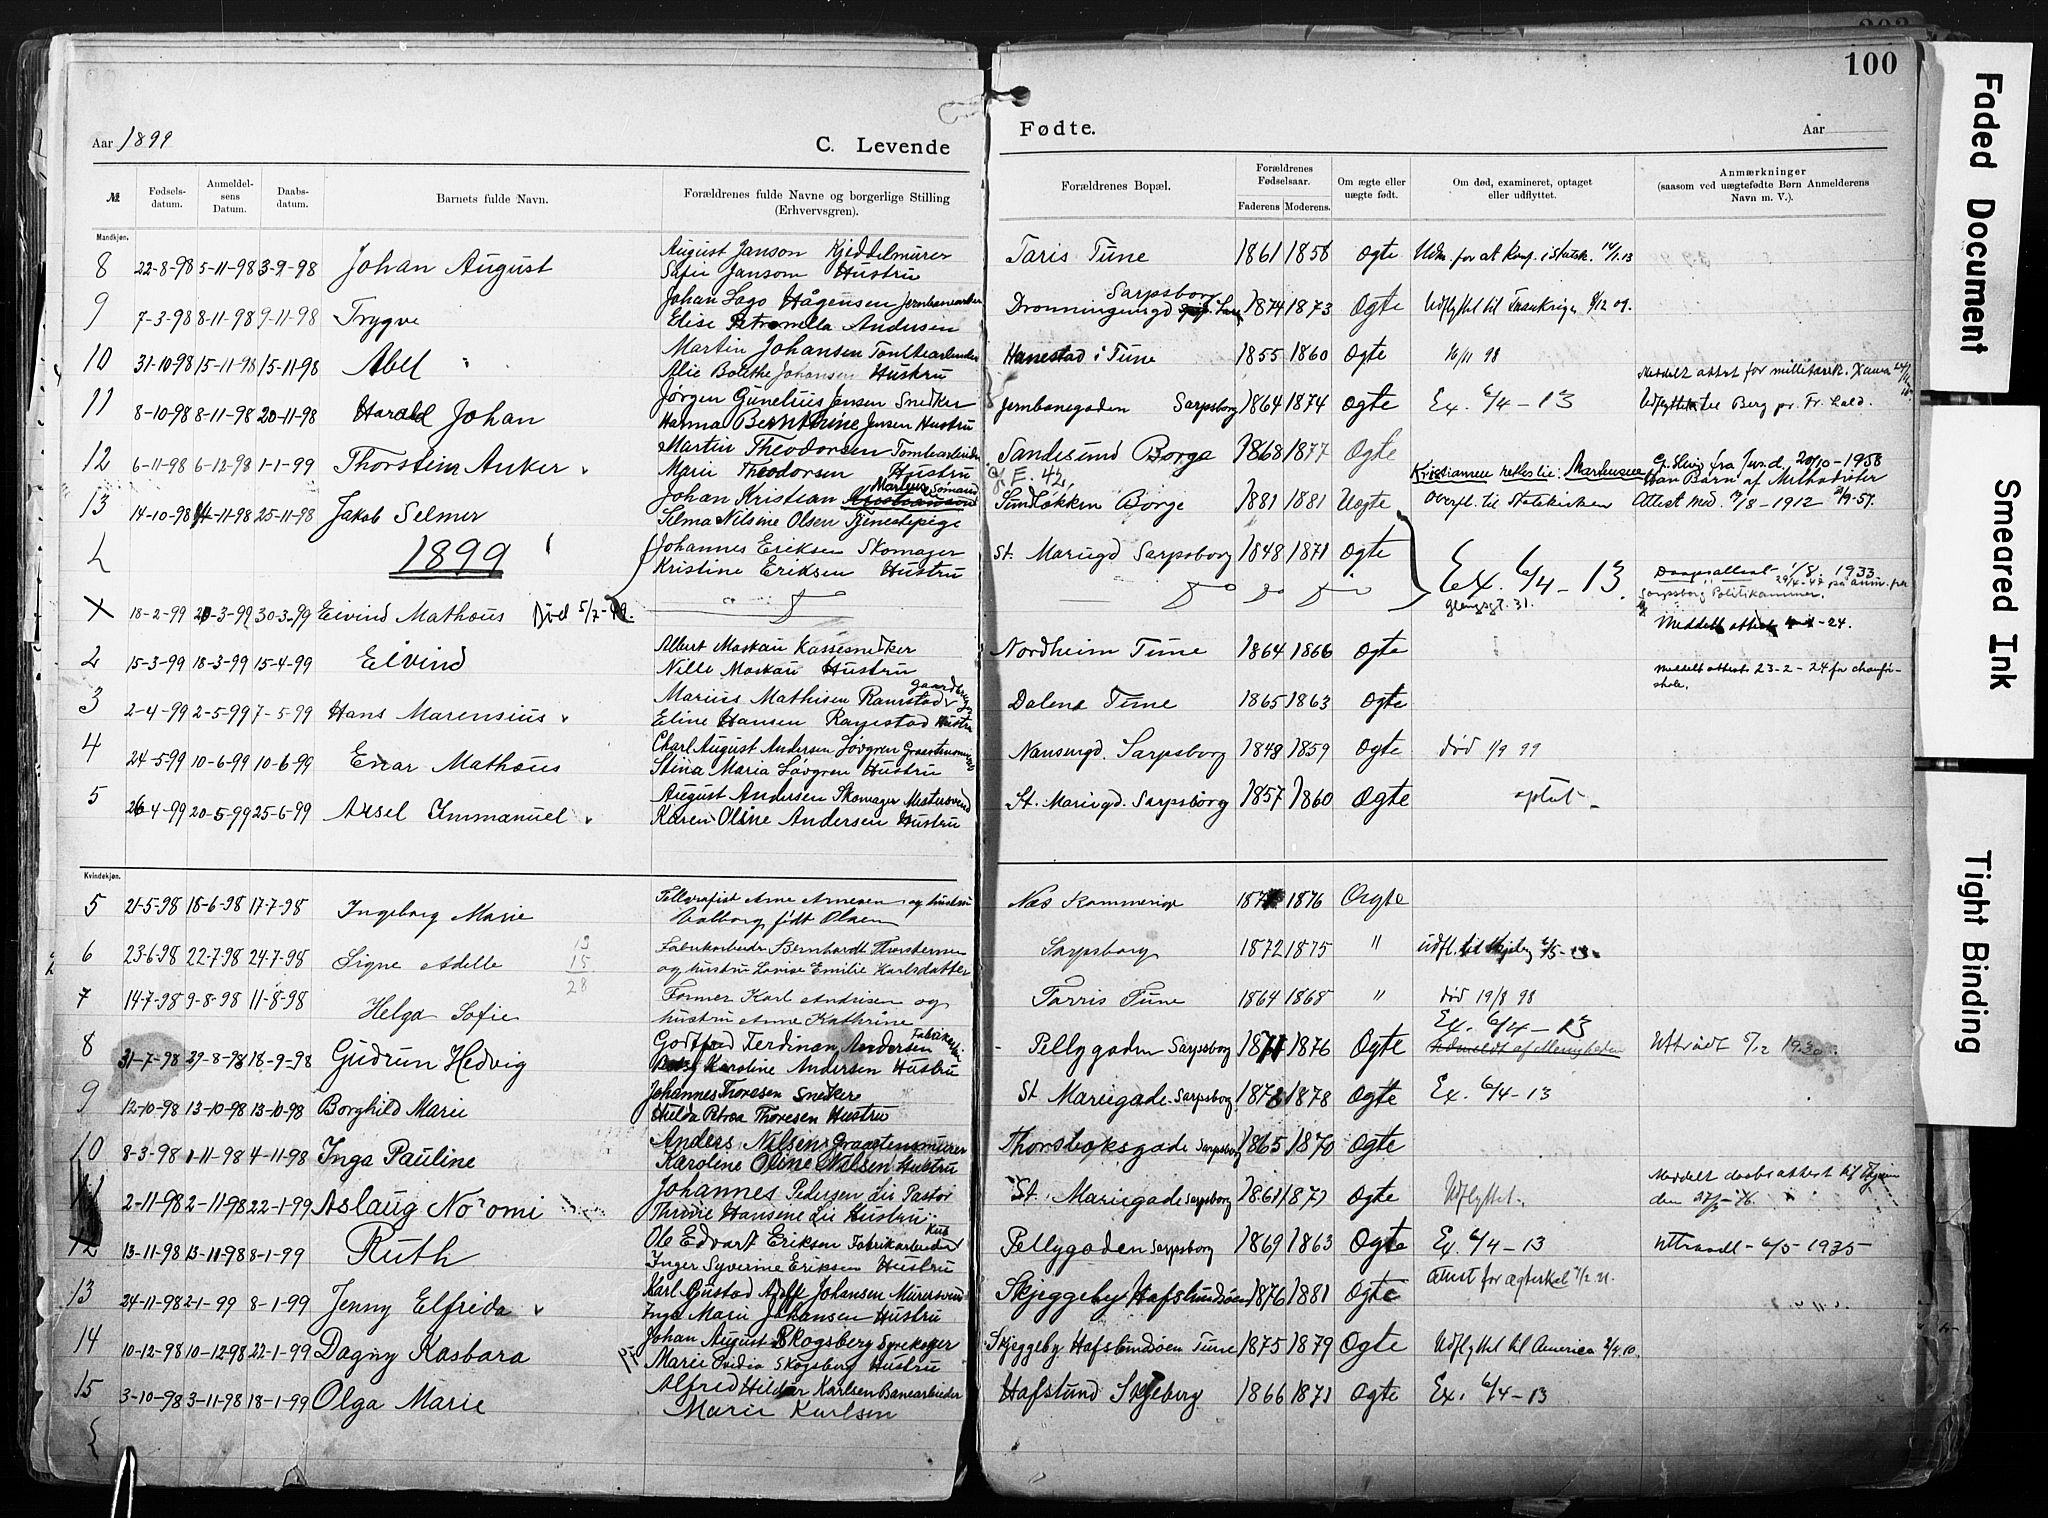 100
Aar 1899
C. Levende
Fødte.
Aar
№
Fødselsdatum.
Anmeldelsens Datum.
Daabsdatum.
Barnets fulde Navn.
Forældrenes fulde Navne og borgerlige Stilling (Erhvervsgren).
Forældrenes Bopæl.
Forældrenes Fødselsaar.
Faderens Moderens.
Om ægte eller uægte født.
Om død, examineret, optaget eller udflyttet.
Anmærkninger (saasom ved uægtefødte Børn Anmelderens Navn m. V.).
Mandkjøn.
8 22-8-98 5-11-98 3-9-98 Johan August August Janson Kjeddelmurer Taris Tune 1861 1858 Ogte Udm. for at Konf. i Statsk. 14/1.13
Sofie Janson Hustru
9 7-3-98 8-11-98 9-11-98 Trygve Johan Lago Hågensen Jernbanearbeider Sarpsborg
Elise Petronella Andersen Dronningensgd 1874 1873 Ogte Udflyttet til 8/12 09.
10 31-10-98 15-11-98 15-11-98 Abel Martin Johansen Tomtearbeider Hanestad i Tune 1855 1860 Ogte 16/11 98
Alie Bolethe Johansen Hustru
Meddelt attest for militærsk.
11 8-10-98 8-11-98 20-11-98 Harald Johan Jørgen Gunelius Jensen Snedker Jernbanegaden Sarpsborg 1864 1874 Ogte Ex. 6/4-13 Udflyttet til Berg pr. Fr. hald.
Hanna Bernthine Jensen Hustru
12 6-11-98 6-12-98 1-1-99 Thorstein Anker Martin Theodorsen Tomtearbeider Sandesund Borge 1868 1877 Ogte
Marie Theodorsen Hustru
cf. E. 42,
fra Jur.d. 20/10-1958
13 14-10-98 14-11-98 25-11-98 Jakob Selmer Johan Kristian Martinsen Sømand Sundløkken Borge 1881 1881 Uogte Overfl. til Statskirken Attest med. 19/8-1912 21/9-57.
Selma Nilsine Olsen Tjenestepige
1899
Johannes Eriksen Skomager St. Mariegd Sarpsborg 1848 1871 Ogte
Kristine Eriksen Hustru
Ex. 6/4-13.
Daapsattest 1/8. 1933
29/4-47 på anm. fra
Sarpsborg Politikammer.
X 18-2-99 20-3-99 30-3-99 Eivind Mathæus Død 5/7-99.
Glengsgt. 31.
Meddelt attest 4-1-24.
2 15-3-99 18-3-99 15-4-99 Eivind Albert Moskau Kassesnedker Nordheim Tune 1864 1866 Ogte
Nille Moskau Hustru
Meddelt attest 23-2-24 for chaufførskole.
3 2-4-99 2-5-99 7-5-99 Hans Marensius Marius Mathisen Ramstad Dalene Tune 1865 1863 Ogte
Eline Hansen Ramstad Hustru
4 24-5-99 10-6-99 10-6-99 Einar Mathæus Charl August Andersen Løvgren Graastensmurer Nansengd. Sarpsborg 1848 1859 Ogte død 1/9 99
Stina Maria Løvgren Hustru
5 26-4-99 20-5-99 25-6-99 Aksel Immanuel August Andersen Skomager Mestersvend St. Mariegd. Sarpsborg 1857 1860 Ogte optat.
Karen Oline Andersen Hustru
Kvindekjøn.
5 21-5-98 18-6-98 17-7-98 Ingeborg Marie Tellegrafist Arne Arnesen og hustru Næs Rommerige 1876 Ægte
Valborg født Olsen
6 23-6-98 22-7-98 24-7-98 Signe Adelle 13 15 28 Fabrikarbeider Bernhardt Thorstensen Sarpsborg 1872 1875 " udfl. til Skjeberg
og hustru Lovise Emilie Karlsdatter
7 14-7-98 9-8-98 11-8-98 Helga Sofie Former Karl Andrisen og Tarris Tune 1864 1868 " død 19/8 98
hustru Anne Kathrine
Ex. 6/4-13
8 31-7-98 29-8-98 18-9-98 Gudrun Hedvig Godtfred Ferdinan Andersen Pellygaden Sarpsborg 1871 1876 Ogte Udmeldt af Menigheden Uttrådt 5/12 1930
Karoline Andersen Hustru
9 12-10-98 13-10-98 13-10-98 Borghild Marie Johannes Thoresen Snedker St. Mariegade Sarpsborg 1878 1878 Ogte Ex. 6/4-13
Hulda Petrea Thoresen Hustru
10 8-3-98 1-11-98 4-11-98 Inga Pauline Anders Nilsen Graastensmurer Thorsbeksgade Sarpsborg 1865 1870 Ogte
Karoline Oline Nilsen Hustru
11 2-11-98 2-11-98 22-1-99 Aslaug No'omi Johannes Pedersen Lie Pastor St. Mariegade Sarpsborg 1861 1871 Ogte Udflyttet. Meddelt daabsattest
Thrine Hansene Lie Hustru
12 13-11-98 13-11-98 8-1-99 Ruth Ole Edvart Eriksen Fabrikarbeider Pellygaden Sarpsborg 1869 1863 Ogte Ex. 6/4-13 Uttraadt - 6/5 1935
Inger Syverine Eriksen Hustru
Attest for ægteskab 7/2 21.
13 24-11-98 2-1-99 8-1-99 Jenny Elfrida Karl Gustad Adolf Johansen Murersvend Skjeggeby Hafslundsøen 1876 1881 Ogte
Inga Marie Johansen Hustru
14 10-12-98 10-12-98 22-1-99 Dagny Kasbara Johan August Skogsberg Skjeggeby Hafslundsøen Tune 1875 1879 Ogte Udflyttet til America 2/4 10.
Marie Skogsberg Hustru
15 3-10-98 3-11-98 18-1-99 Olga Marie Alfred Hildar Karlsen Banearbeider Hafslund Skjeberg 1866 1871 Ogte Ex. 6/4-13
Marie Karlsen
Faded Document
Smeared Ink
Tight Binding